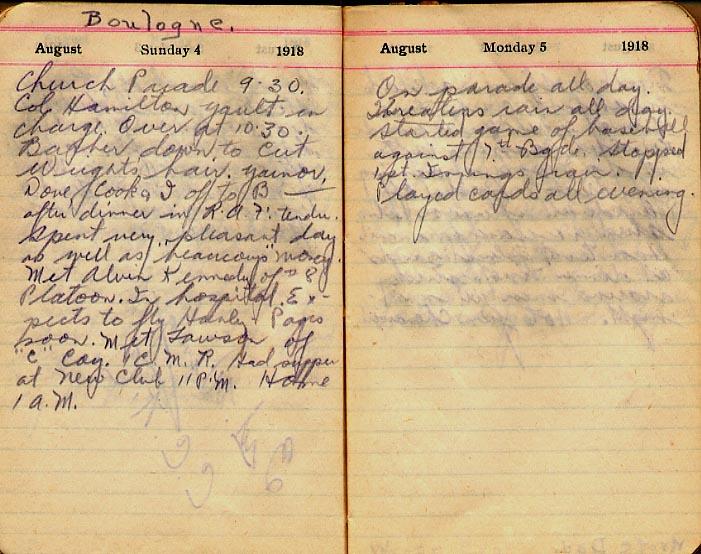 Boulogne.
August Sunday 4 1918
Church Parade 9.30.
Col. Hamilton Gault in
charge. Over at 10:30.
down to cut
Wrights hair. Gainor,
Dove, Cook & I off to B——
after dinner in R.A.F. tender.
Spent very pleasant day
as well as "beaucoup" money.
Met Alvin Kennedy of # 8
Platoon. In hospital. Ex-
pects to fly Hanley Pages
soon. Met Lawson of
"C" Coy. 1 C.M.R. Had supper
at New Club 11 P.M. Home
1 A.M.
August Monday 5 1918
On parade all day.
Threatens rain all day.
Started game of baseball
against 7th Bgde. Stopped
1st Innings rain.
Played cards all evening.